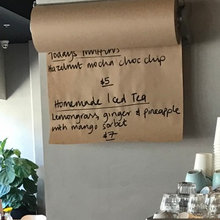 Todays Muffins
Hazelnut mocha choc chip
$5
Homemade Iced Tea
Lemongrass, ginger & pineapple
with mango sorbet
$7